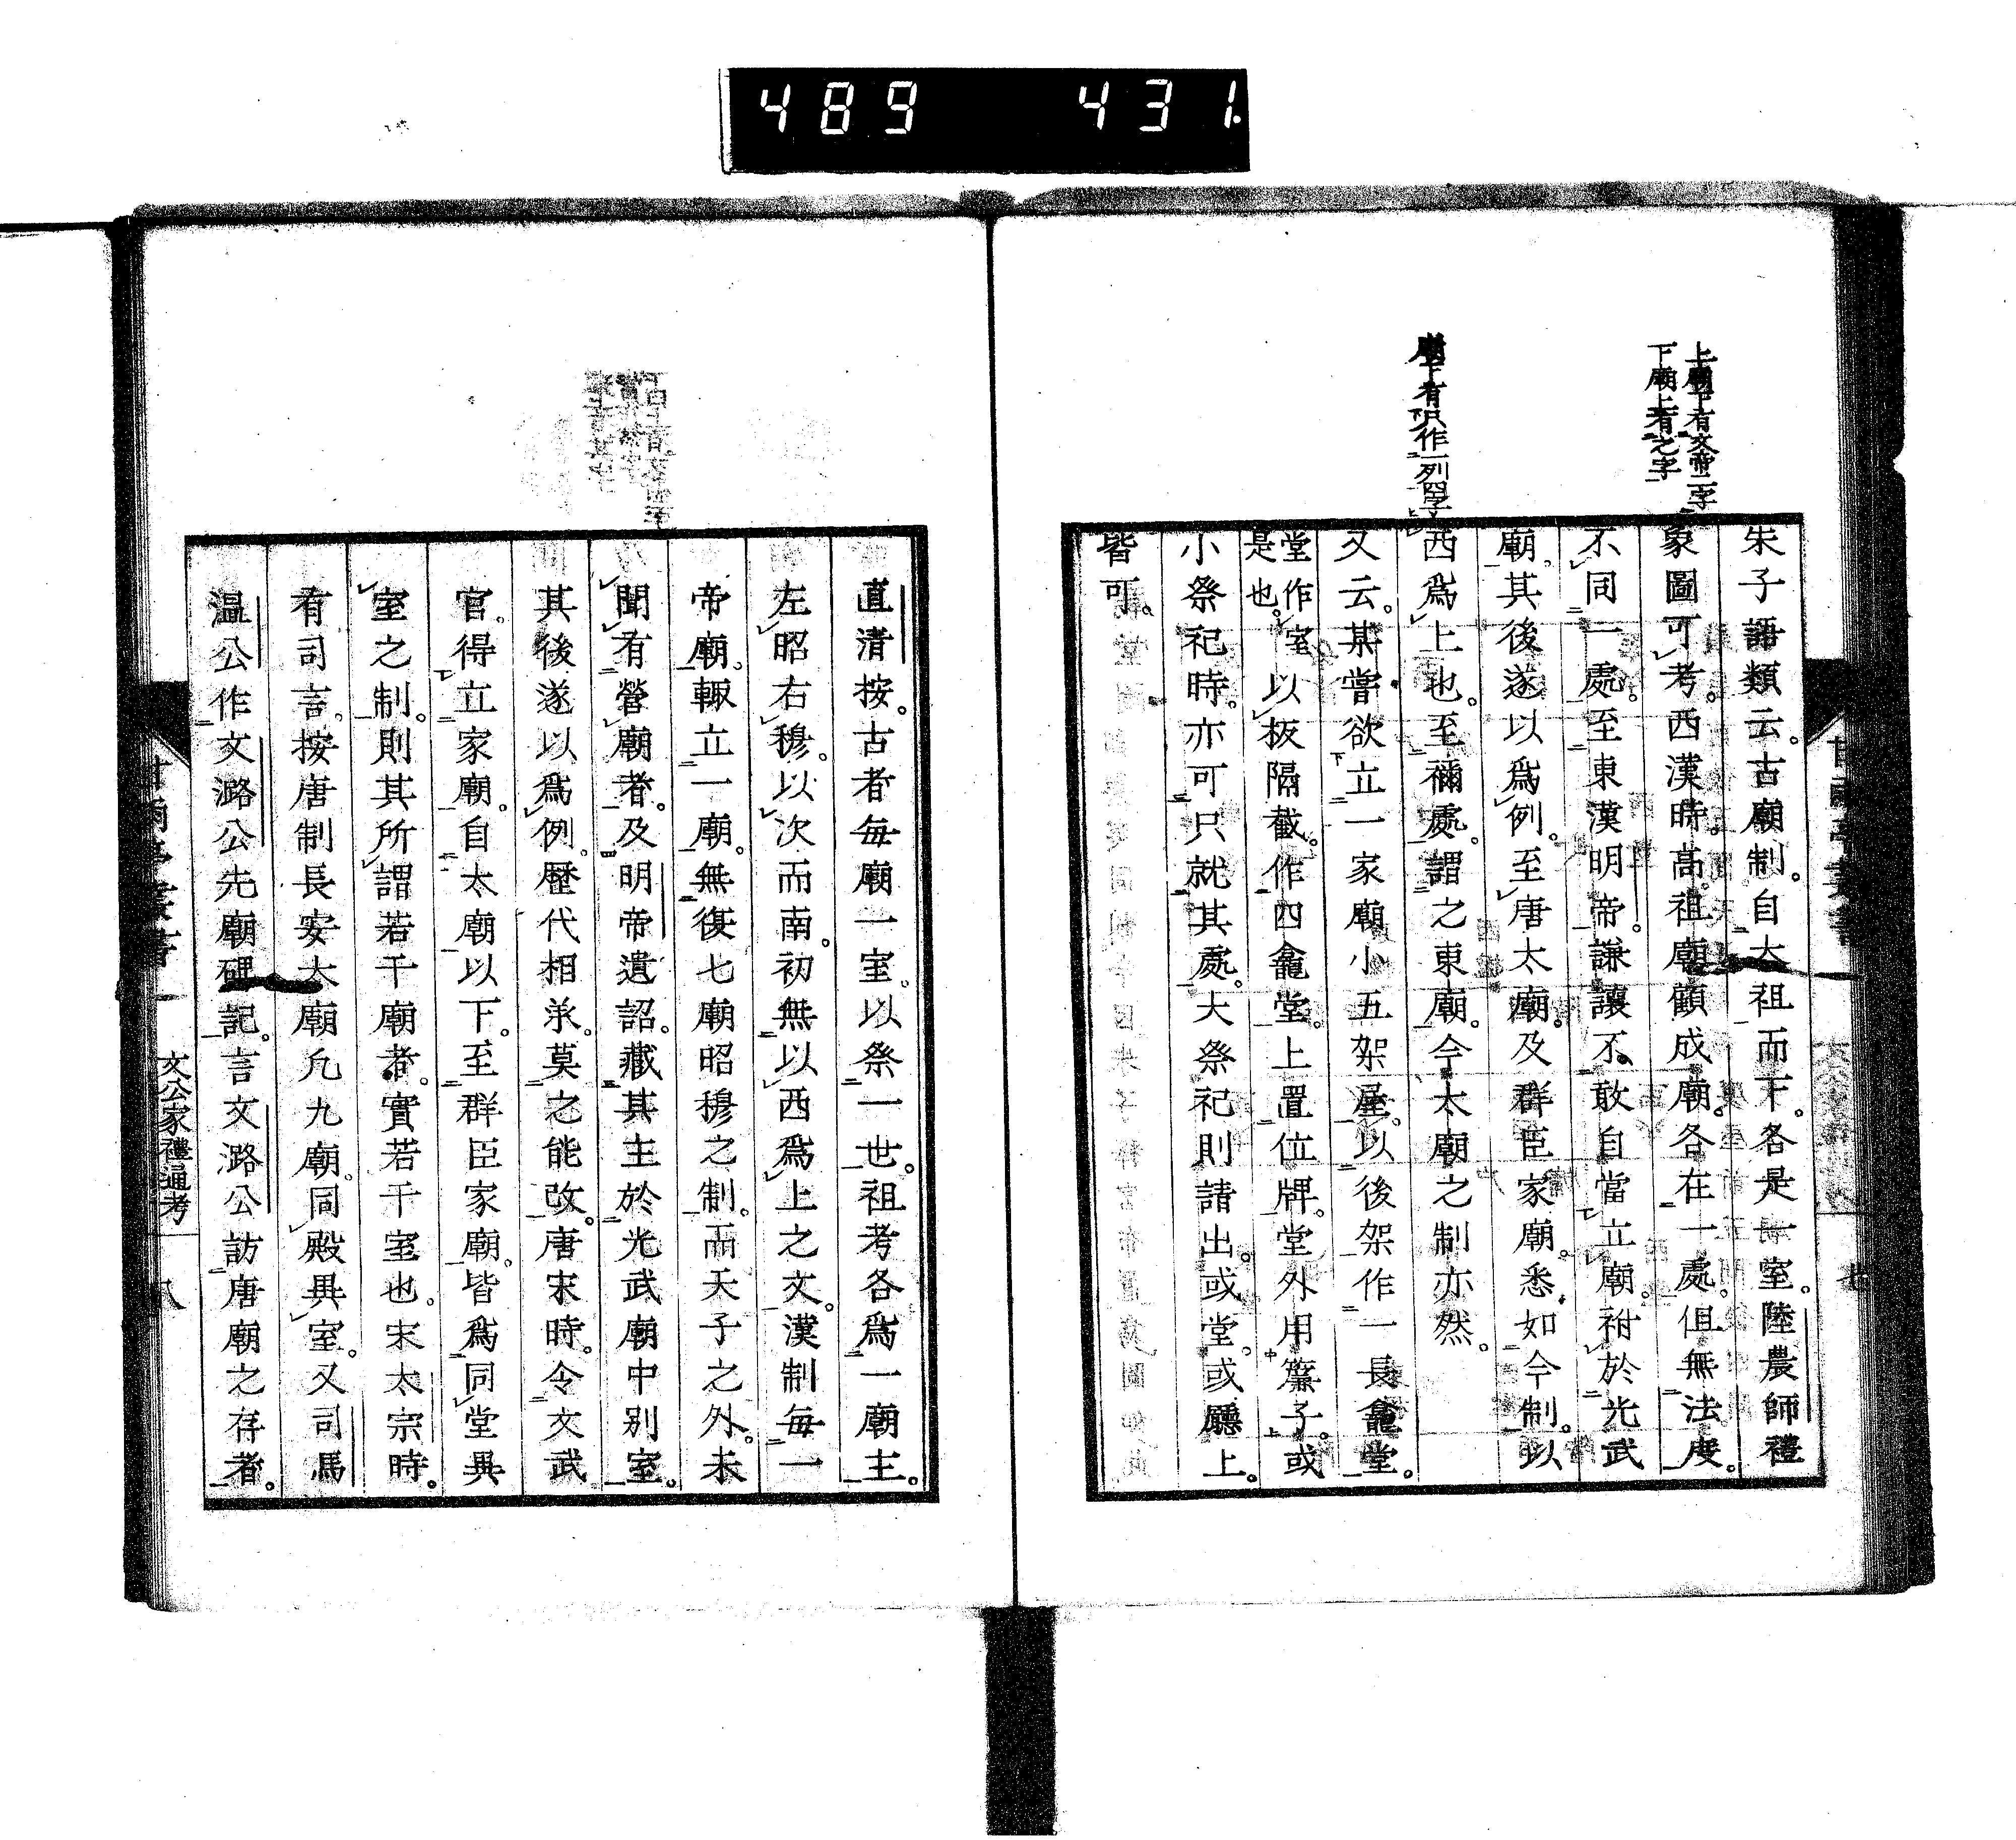 489 431.
上廟下有文帝二字
下廟上有之字
廟下有只作一列四字
朱子語類云。古廟制。自大祖而下。各是一室。陸農師禮
象圖可考。西漢時。高祖廟。顧成廟。各在一處。但無法度。
不同一處。至東漢明帝。謙讓不敢自當立廟。祔於光武
廟。其後遂以爲例。至唐太廟。及群臣家廟。悉如今制。以
西爲上也。至禰處。謂之東廟。今太廟之制亦然。
又云。某嘗欲立一家廟小五架屋。以後架作一長龕堂。
堂作室
是也。
以板隔截。作四龕堂。上置位牌。堂外用簾子。或
小祭祀時。亦可只就其處。大祭祀則請出。或堂。或廳上。
皆可。
甘雨亭叢書
七
直清按。古者每廟一室。以祭一世。祖考各爲一廟主。
左昭右穆。以次而南。初無以西爲上之文。漢制每一
帝廟。輒立一廟。無復七廟昭穆之制。而天子之外。未
聞有營廟者。及明帝遺詔。藏其主於光武廟中別室。
其後遂以爲例。歷代相承。莫之能改。唐宋時。令文武
官。得立家廟。自太廟以下。至群臣家廟。皆爲同堂異
室之制。則其所謂若干廟者。實若干室也。宋太宗時。
有司言。按唐制長安太廟凡九廟。同殿異室。又司馬
溫公作文潞公先廟碑記。言文潞公訪唐廟之存者。
甘雨亭叢書
文公家禮通考
八